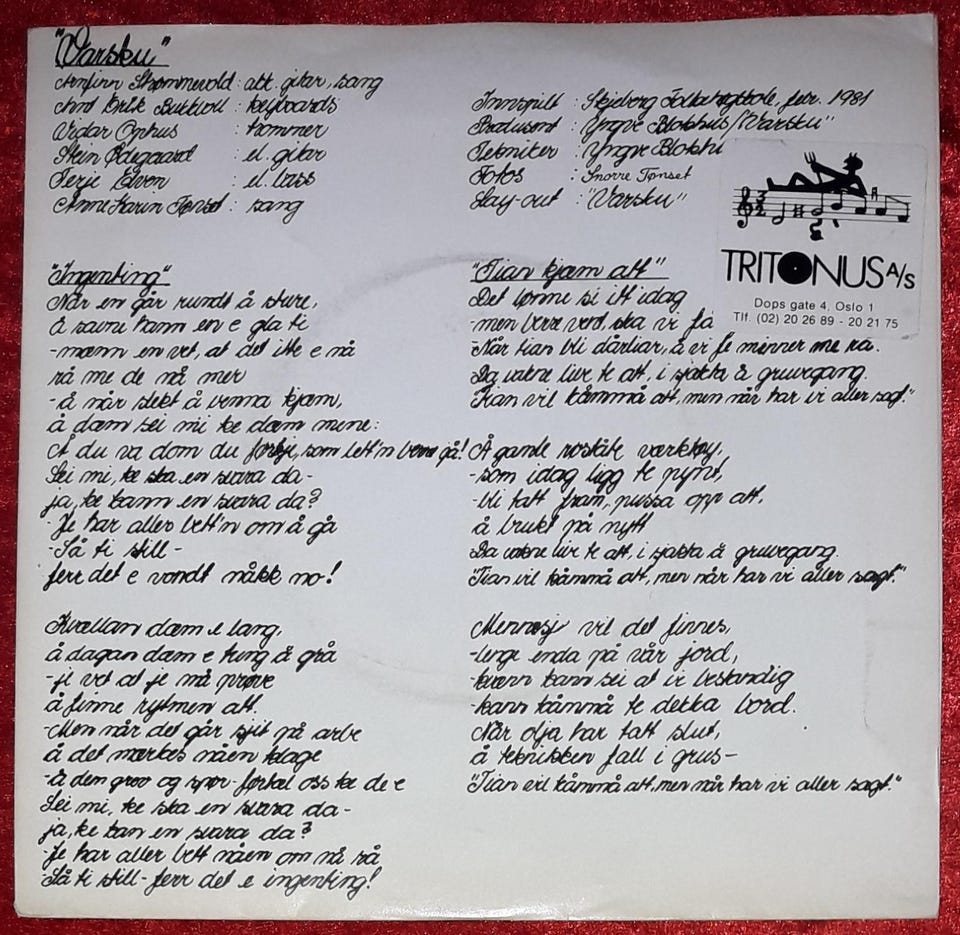 "Varsku"
Arnfinn Strømmevold : akk. gitar, sang
Arnt Erik Bukkvoll : keyboards
Vidar Ophus : trommer
Stein Ødegaard : el. gitar
Terje Elven : el. bass
Anne Karin Tønset : sang
Innspilt : Skjeberg Folkehøgskole, febr. 1981
Produsent : Yngve Blokhus/"Varsku"
Tekniker : Yngve Blokhu
Fotos : Snorre Tønset
Lay-out : "Varsku"
TRITONUS A/S
Dops gate 4, Oslo 1
Tlf. (02) 20 26 89 - 20 21 75
"Ingenting"
Når en går rundt å sture,
å savne hann en e gla ti
-mænn en vet, at det itt e nå
rå me de nå mer
-å når slekt å venna kjæm,
å dæm sei mi ke dæm mine:
Å du va dom du førkje, som lett'n bærre gå!
Sei mi, ke ska en svara da-
ja, ke kann en svara da?
-Je har aller bett'n om å gå
-Så ti still-
ferr det e vondt nåkk no!
Kvællan dæm e lang,
å dagan dæm e tung å grå
-je vet at je må prøve
å finne rytmen att.
-Men når det går sjit på arbe
å det mærkes nåen klage
-å den groo og spør- førtal oss ke de e
Sei mi, ke ska en svara da-
ja, ke kan en svara da?
-Je har aller bett nåen om nå rå
"Så ti still - ferr det e ingenting!
"Tian kjæm att"
Det lønne si itt idag
-men bærre vent, ska vi få
-Når tian bli dårliar, å vi fe minner me rå.
Da vakne livr te att, i sjakta å gruvegang.
"Tian vil kåmmå att, men når har vi aller sagt."
Å gamle roståte værktøy,
-som idag ligg te pynt,
-bli tatt fram, pussa opp att,
å brukt på nytt
Da vakne livr te att, i sjakta å gruvegang.
"Tian vil kåmmå att, men når har vi aller sagt."
Mennesj vil det finnes,
-lenge enda på vår jord,
-kvænn kann sei at ir bestandig
-kann kåmmå te dekka bord.
Når olja har tatt slut,
å teknikken fall i grus-
"Tian vil kåmmå att, men når har vi aller sagt."